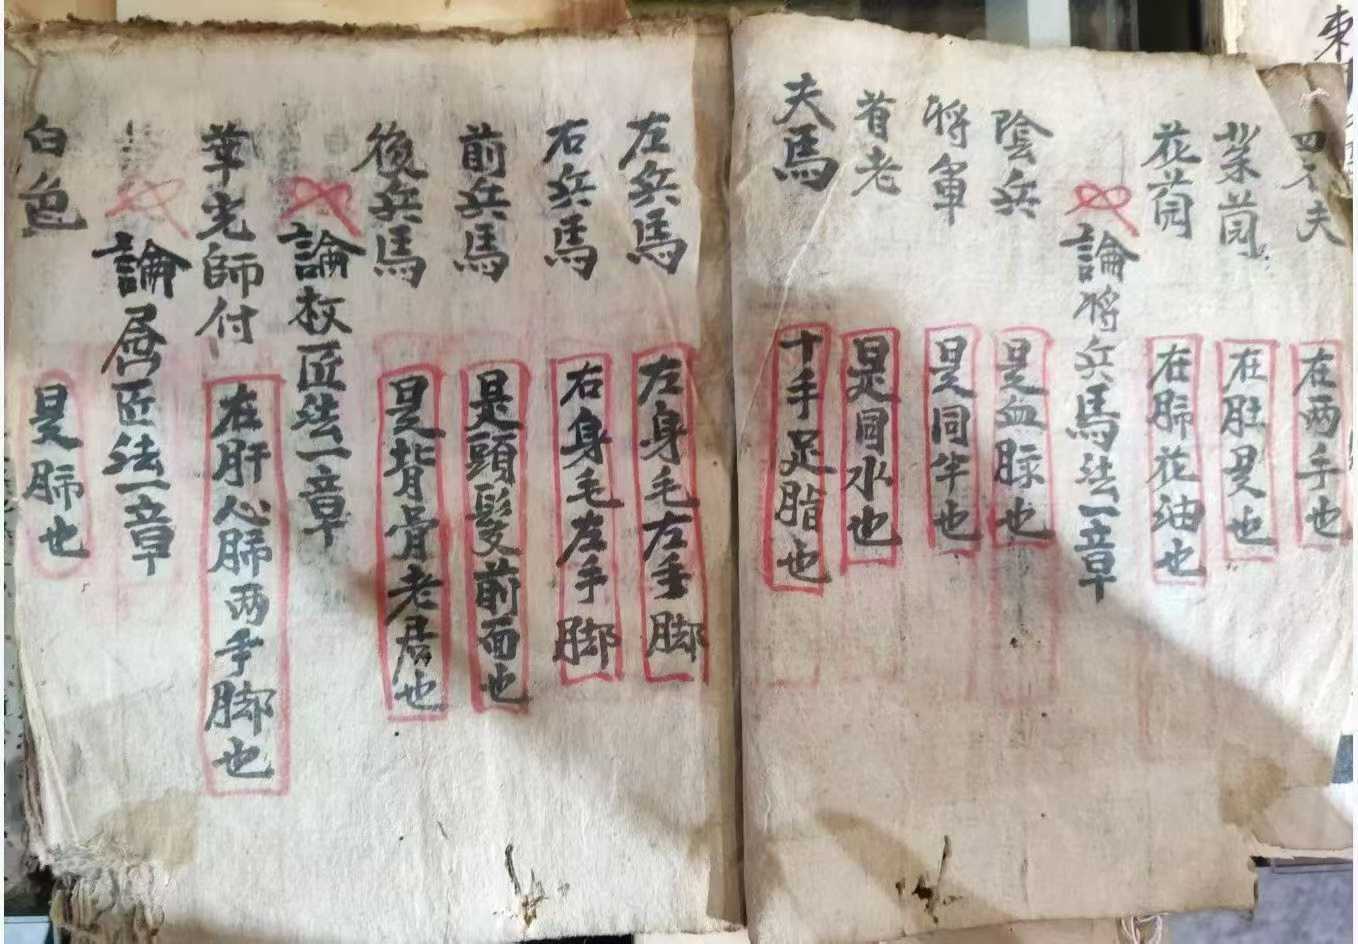 東
四不夫 在两手也
菜園 在肚旲也
花園 在肺花油也
論將兵馬法一章
陰兵 是血脉也
將軍 是同牢也
首老 是同水也
夫馬 十手足脂也
左兵馬 左身毛左手脚
右兵馬 右身毛左手脚
前兵馬 是頭髮前面也
後兵馬 是背骨老居也
論枚匠法一章
華光師付 在肝心肺两手脚也
論屠匠法一章
白色 是肺也